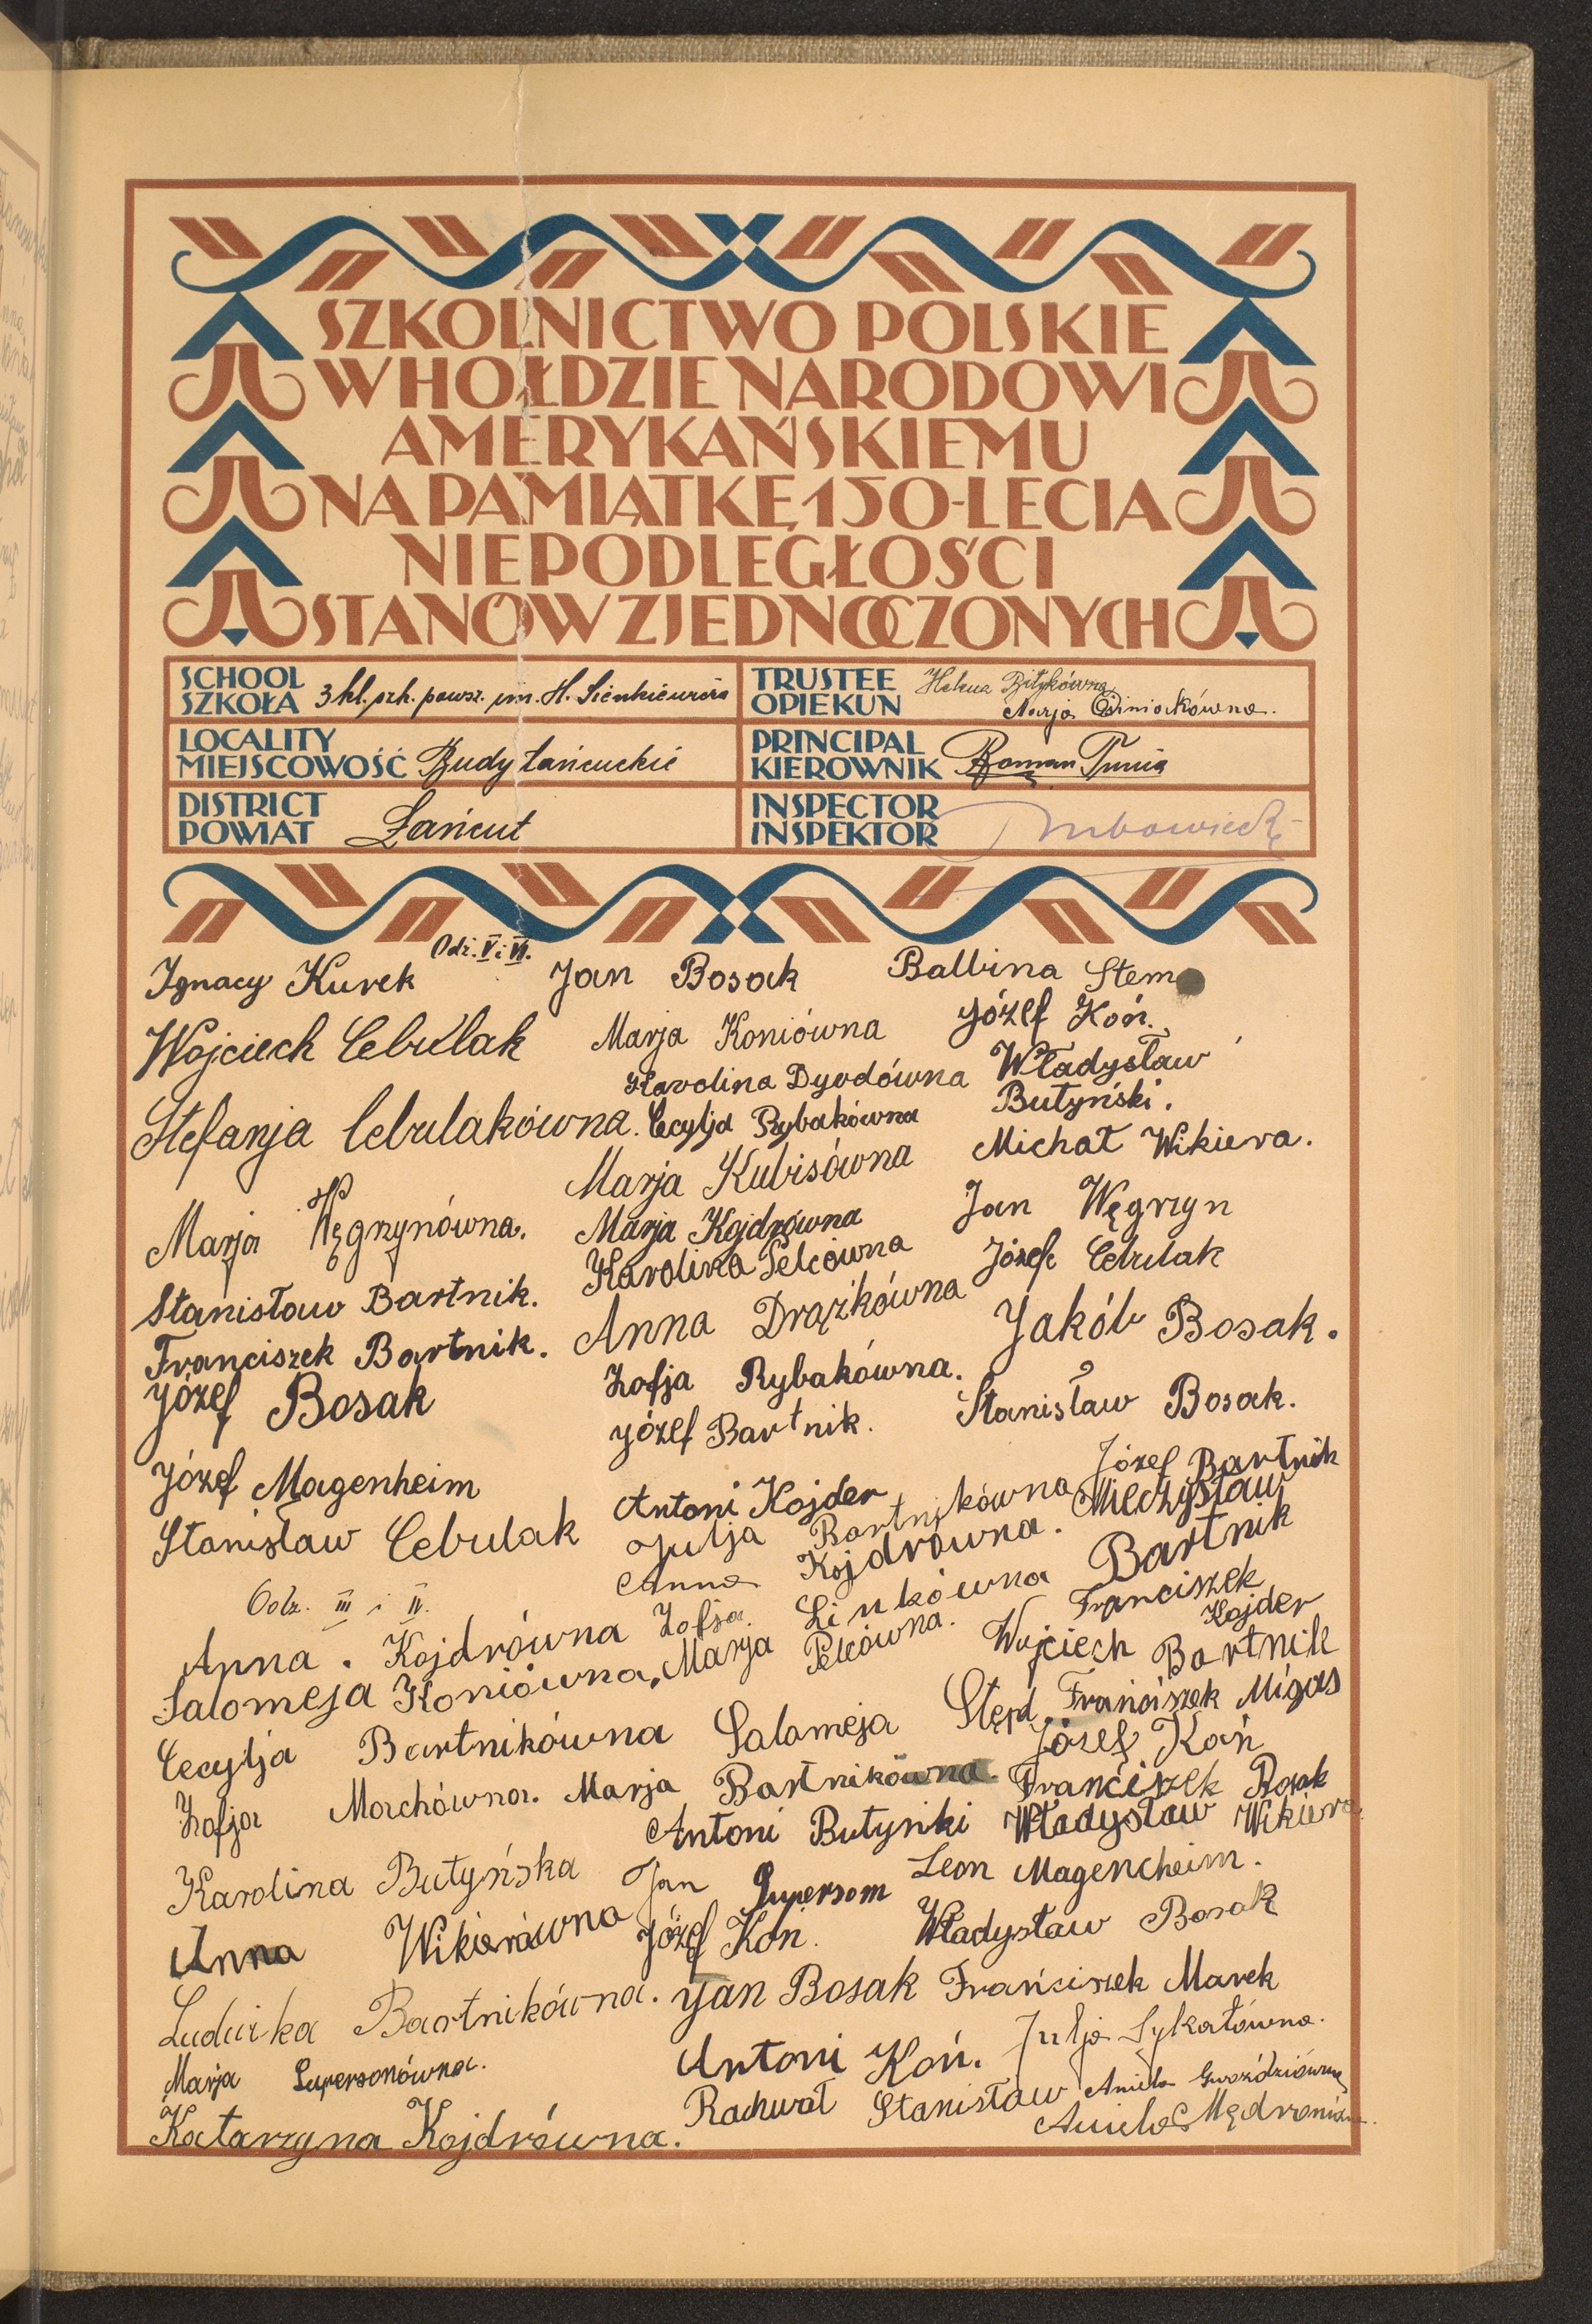 SZKOLNICTWO POLSKIE
W HOŁDZIE NARODOWI
AMERYKAŃSKIEMU
NA PAMIĄTKĘ 150-LECIA
NIEPODLEGŁOŚCI
STANÓW ZJEDNOCZONYCH
SCHOOL
SZKOŁA 3 kl. szk. powsz. im. H. Sienkiewicza
TRUSTEE Helena
OPIEKUN Marja
LOCALITY
MIEJSCOWOŚĆ Budy Łańcuckie
PRINCIPAL
KIEROWNIK Roman
DISTRICT
POWIAT Łańcut
INSPECTOR
INSPEKTOR
Odz. V i VI.
Ignacy Kurek
Wojciech Cebulak
Stefanja Cebulakówna.
Marja Węgrzynówna.
Stanisław Bartnik.
Franciszek Bartnik.
Józef Bosak
Józef Magenheim
Stanisław Cebulak
Jan Bosak
Marja Koniówna
Karolina Dyrdówna
Cecylja Rybakówna
Marja Kubisówna
Marja Kojdrówna
Karolina Pelcówna
Anna Drążkówna
Zofja Rybakówna.
Józef Bartnik.
Antoni Kojder
Julja Bartnikówna
Anna Kojdrówna.
Balbina
Józef Koń.
Władysław
Butyński.
Michał Wikiera.
Jan Węgrzyn
Józef Cebulak
Jakób Bosak.
Stanisław Bosak.
Józef Bartnik
Mieczysław
Bartnik
Franciszek
Kojder
Wojciech Bartnik
Odz. III i IV.
Anna Kojdrówna Zofja Linkówna
Salomeja Koniówna, Marja Pelcówna.
Cecylja Bartnikówna Salomeja Stęp. Franciszek Migas
Józef Koń
Zofja Machówna. Marja Bartnikówna. Franciszek Bosak
Antoni Butynki Władysław Wikiera
Karolina Butyńska Jan Superson Leon Magencheim.
Anna Wikierówna Józef Koń. Władysław Bosak
Ludwika Bartnikówna. Jan Bosak Franciszek Marek
Marja Supersonówna. Antoni Koń. Julja Sykałówna.
Rachwał Stanisław Aniela Gwoździówna
Katarzyna Kojdrówna. Aniela